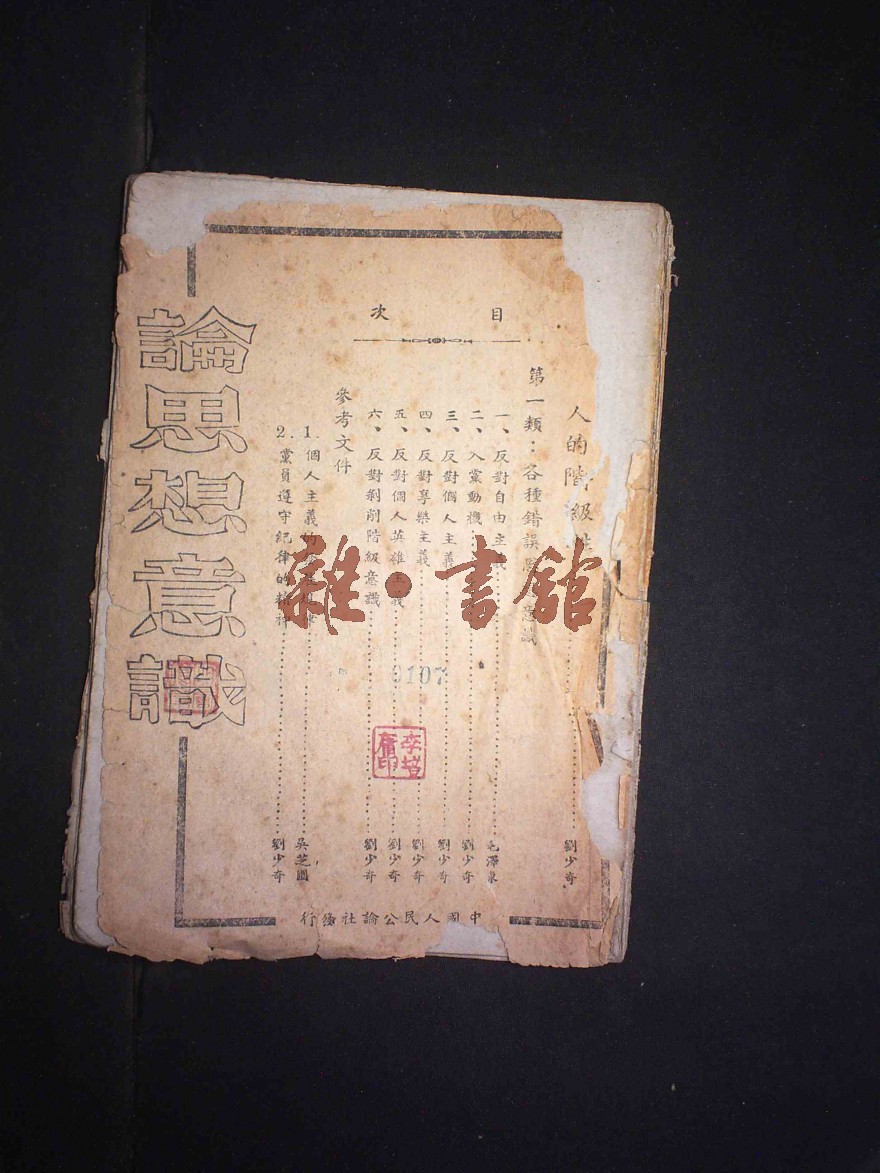 論思想意識
目次
人的階級性 劉少奇
第一類：各種錯誤思想意識
一、反對自由主義 毛澤東
二、入黨動機 劉少奇
三、反對個人主義 劉少奇
四、反對享樂主義 劉少奇
五、反對個人英雄主義 劉少奇
六、反對剝削階級意識 劉少奇
參考文件
1. 個人主義的 吳芝圃
2. 黨員遵守紀律的精神 劉少奇
中國人民公論社發行
0107
雜·書館